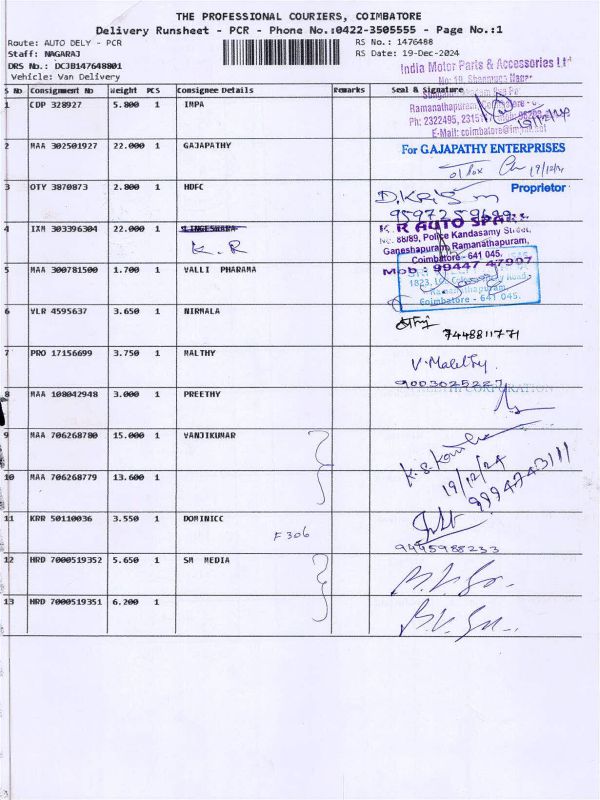 THE PROFESSIONAL COURIERS, COIMBATORE
Delivery Runsheet - PCR - Phone No.:0422-3505555 - Page No.:1
Route: AUTO DELY - PCR
RS No.: 1476488
Staff: NAGARAJ
RS Date: 19-Dec-2024
DRS No.: DCJB147648801
Vehicle: Van Delivery
India Motor Parts & Accessories Lt
No: 10, Shanmuga Nagar
S No Consignment No Weight PCS Consignee Details Remarks Seal & Signature
1 CDP 328927 5.800 1 IMPA
Ramanathapuram, Coimbatore
Ph: 2322495,
E-Mail: coimbatore@impal.net
19/12/24
2 MAA 302501927 22.000 1 GAJAPATHY
For GAJAPATHY ENTERPRISES
19/12/24
Proprietor
3 OTY 3870873 2.800 1 HDFC
4 IXM 303396304 22.000 1 LINGESWARA
K.R
K R AUTO SPARES
No: 86/89, Police Kandasamy Street,
Ganeshapuram, Ramanathapuram,
Coimbatore - 641 045.
Mob : 99447 47907
5 MAA 300781500 1.700 1 VALLI PHARAMA
Ramanathapuram,
Coimbatore - 641 045.
6 VLR 4595637 3.650 1 NIRMALA
7448811771
7 PRO 17156699 3.750 1 MALTHY
V. Malethy
9003025227
8 MAA 108042948 3.000 1 PREETHY
CORPORATION
9 MAA 706268780 15.000 1 VANJIKUMAR
10 MAA 706268779 13.600 1
19/12/24
9994743111
11 KRR 50110036 3.550 1 DOMINICC
F 306
9445988233
12 HRD 7000519352 5.650 1 SM MEDIA
13 HRD 7000519351 6.200 1